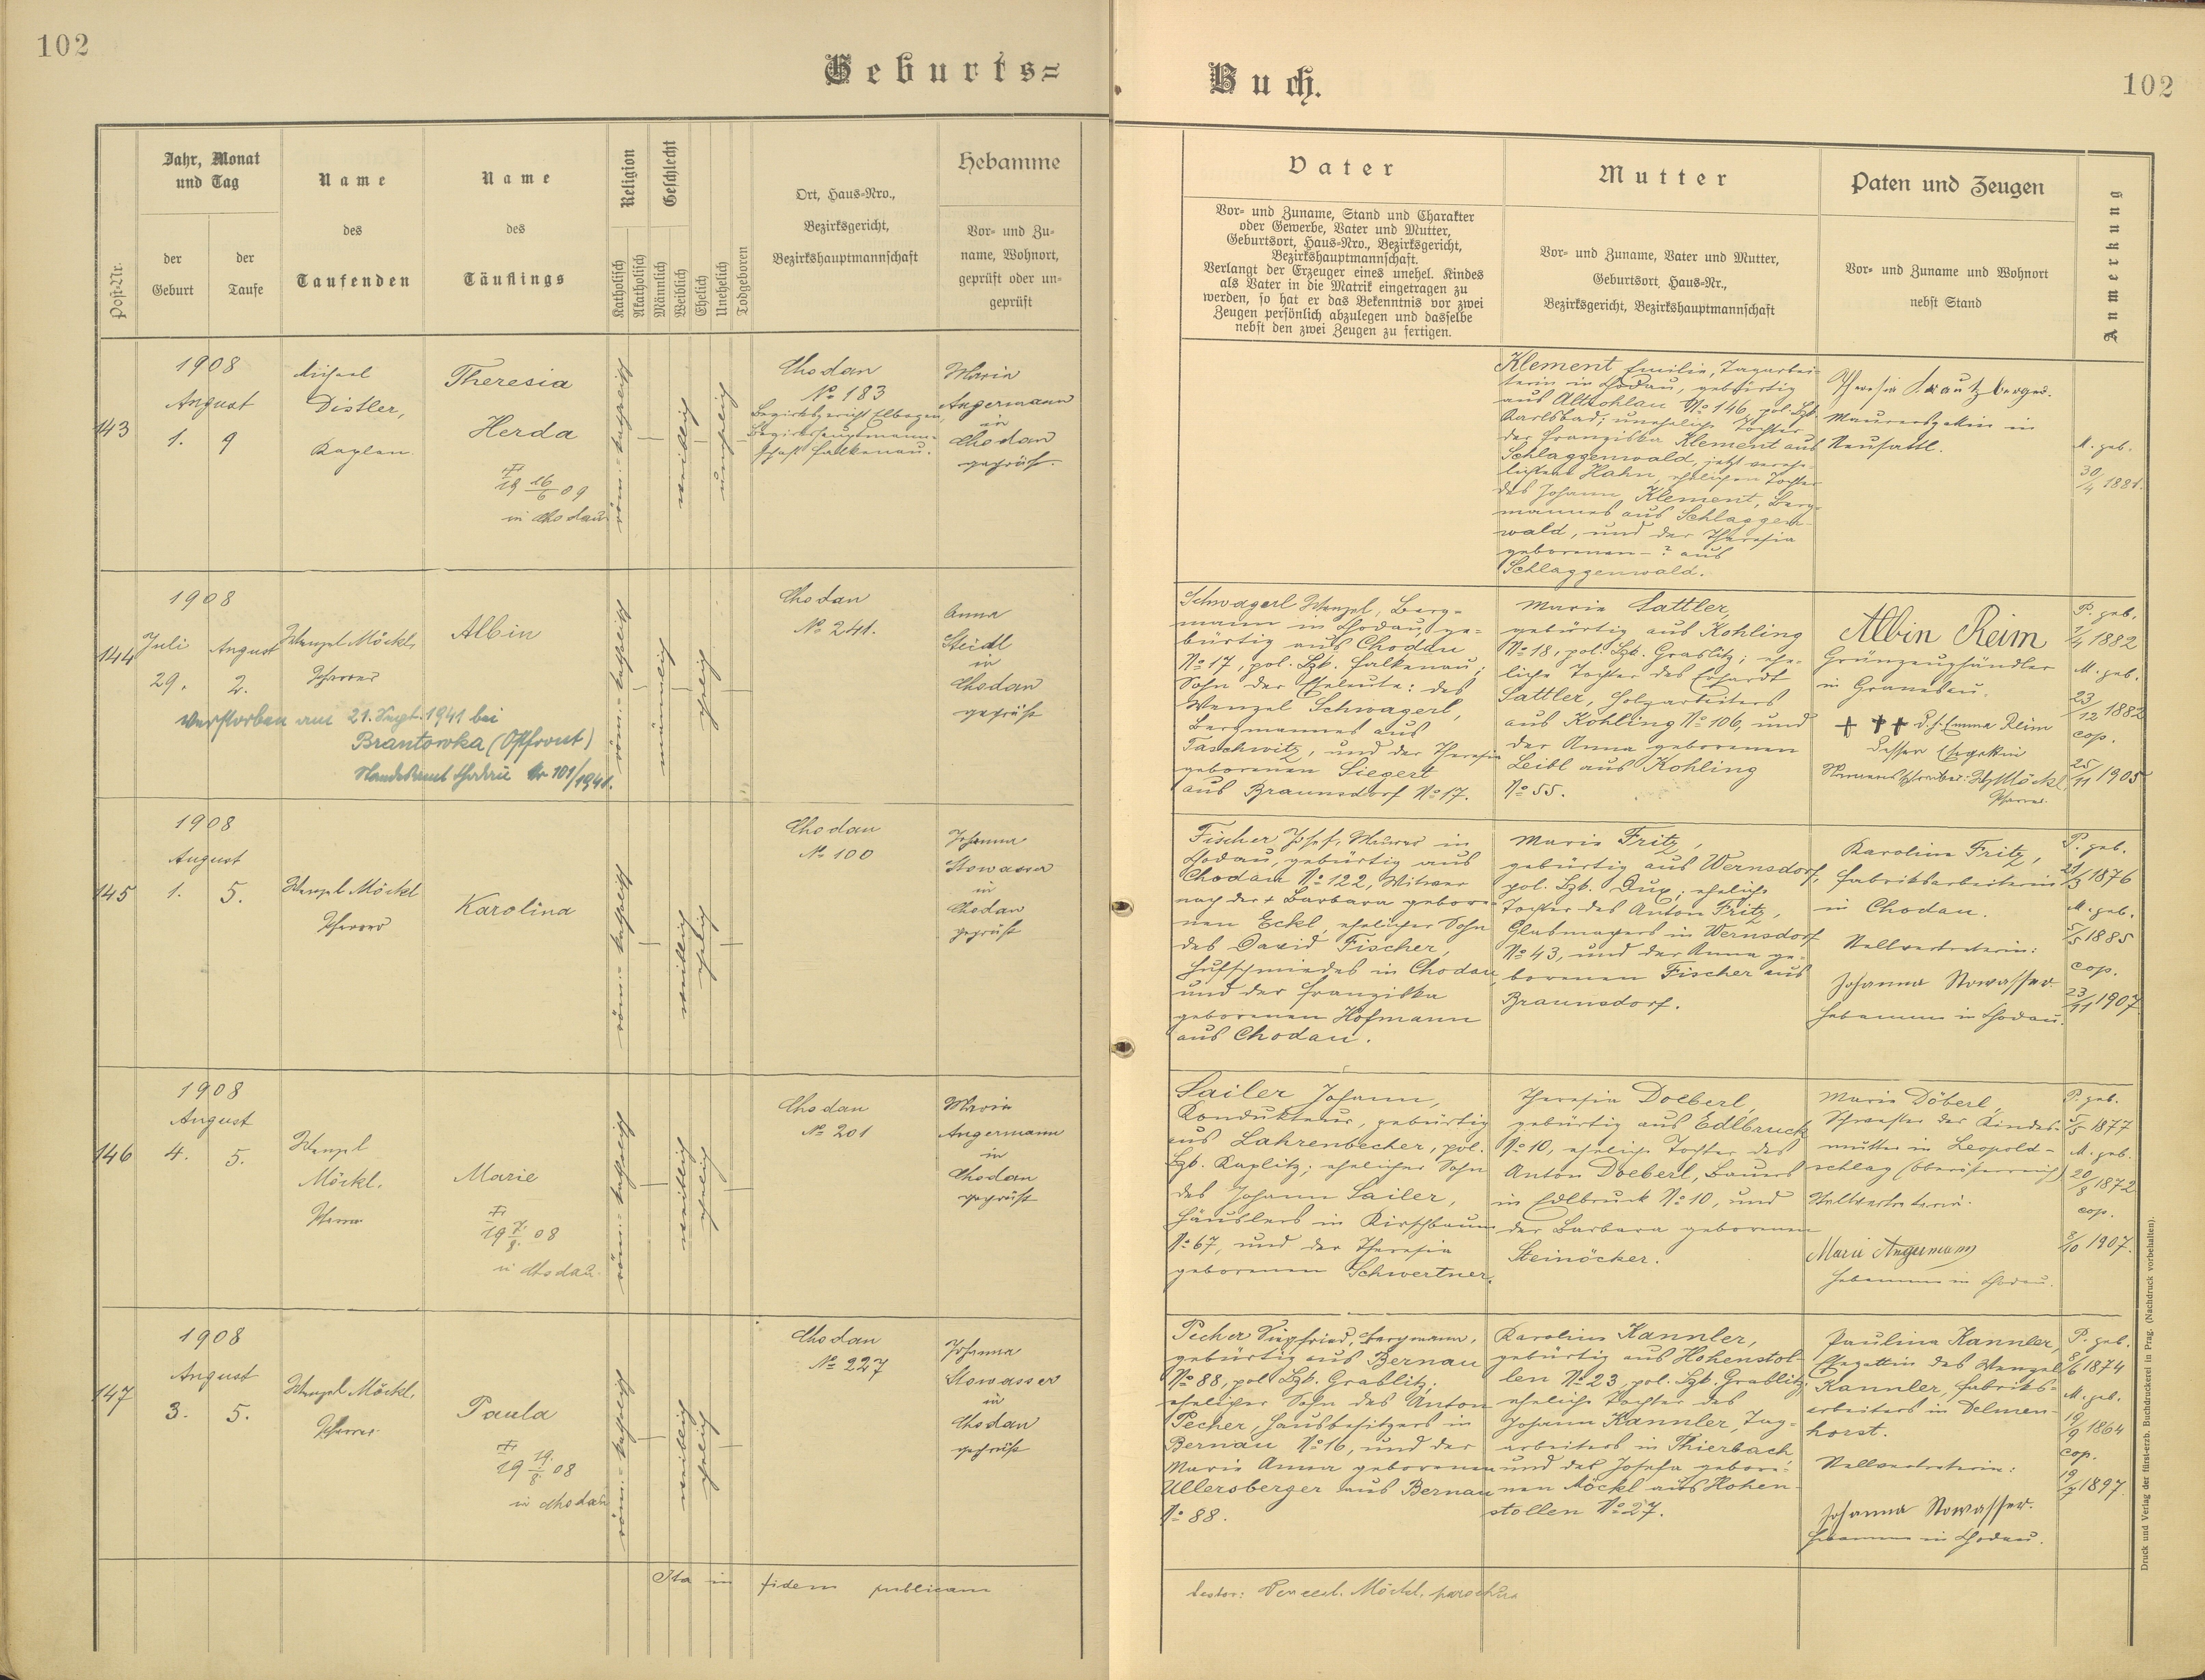 102
Geburts=
Jahr, Monat
und Tag
Name
Name
Religion
Geschlecht
Ort, Haus=Nro.,
Hebamme
Post=Nr.
der
Geburt
der
Taufe
des
Taufenden
des
Täuflings
Katholisch
Akatholisch
Männlich
Weiblich
Ehelich
Unehelich
Todgeboren
Bezirksgericht,
Bezirkshauptmannschaft
Vor= und Zu=
name, Wohnort,
geprüft oder un=
geprüft
143
1908
August
1. 9
Michael
Distler,
Kaplan
Theresia
Herda
19 16/6 09
in Chodau
röm.-katholisch
weiblich
unehelich
Chodau
No 183
Bezirksgericht Elbogen,
Bezirkshauptmann-
schaft Falkenau.
Maria
Angermann
in
Chodau
geprüft.
144
1908
Juli August
29. 2.
Wenzel Möckl,
Pfarrer
Albin
verstorben am 21. Sept. 1941 bei
Brantowka (Ostfront)
Standesamt Chodau Nr 101/1941.
röm.-katholisch
männlich
ehelich
Chodau
No 241.
Anna
Steidl
in
Chodau
geprüft
145
1908
August
1. 5.
Wenzel Möckl
Pfarrer
Karolina
röm.-katholisch
weiblich
ehelich
Chodau
No 100
Johanna
Stowasser
in
Chodau
geprüft
146
1908
August
4. 5.
Wenzel
Möckl.
Pfarrer
Marie
19 7./8. 08
in Chodau
röm.-katholisch
weiblich
ehelich
Chodau
No 201
Maria
Angermann
in
Chodau
geprüft
147
1908
August
3. 5.
Wenzel Möckl.
Pfarrer
Paula
19 19./8. 08
in Chodau
röm.-katholisch
weiblich
ehelich
Chodau
No 227
Johanna
Stowasser
in
Chodau
geprüft
Ita in fidem publicam
Buch.
102
Vater
Mutter
Paten und Zeugen
Anmerkung
Vor= und Zuname, Stand und Charakter
oder Gewerbe, Vater und Mutter,
Geburtsort, Haus=Nro., Bezirksgericht,
Bezirkshauptmannschaft.
Verlangt der Erzeuger eines unehel. Kindes
als Vater in die Matrik eingetragen zu
werden, so hat er das Bekenntnis vor zwei
Zeugen persönlich abzulegen und dasselbe
nebst den zwei Zeugen zu fertigen.
Vor= und Zuname, Vater und Mutter,
Geburtsort, Haus=Nr.,
Bezirksgericht, Bezirkshauptmannschaft
Vor= und Zuname und Wohnort
nebst Stand
Klement Emilie, Tagarbei-
terin in Chodau, gebürtig
aus Altrohlau No 146, pol. Bzk.
Karlsbad; uneheliche Tochter
der Franziska Klement aus
Schlaggenwald, jetzt verehe-
lichten Hahn, ehelichen Tochter
des Johann Klement, Berg-
mannes aus Schlaggen-
wald, und der Theresia
geborenen - ? aus
Schlaggenwald.
Theresia Krautzberger
Maurersgattin in
Neusattl.
M. geb.
30/4 1881.
Schwagerl Wenzel, Berg-
mann in Chodau, ge-
bürtig aus Chodau
No 17, pol. Bzk. Falkenau;
Sohn der Eheleute: des
Wenzel Schwagerl,
Bergmannes aus
Taschwitz, und der Theresia
geborenen Siegert
aus Braunsdorf No 17.
Marie Sattler,
gebürtig aus Kohling
No 18, pol. Bzk. Graslitz; ehe-
liche Tochter des Erhardt
Sattler, Holzarbeiters
aus Kohling No 106, und
der Anna geborenen
Leibl aus Kohling
No 55.
Albin Reim
Grünzeughändler
in Granesau.
+ + + d. h. Emma Reim
dessen Ehegattin
Namensschreiber: W. Möckl
Pfarrer.
P. geb.
1/4 1882
M. geb.
23/12 1882
cop.
25/11 1905
Fischer Josef, Maurer in
Chodau, gebürtig aus
Chodau No 122, Witwer
nach der + Barbara gebore-
nen Eckl, ehelicher Sohn
des David Fischer,
Hufschmiedes in Chodau,
und der Franziska
geborenen Hofmann
aus Chodau.
Marie Fritz,
gebürtig aus Wernsdorf,
pol. Bzk. Dux; eheliche
Tochter des Anton Fritz,
Glasmachers in Wernsdorf
No 43, und der Anna ge-
borenen Fischer aus
Braunsdorf.
Karolina Fritz,
Fabriksarbeiterin
in Chodau.
Stellvertreterin:
Johanna Stowasser
Hebamme in Chodau.
P. geb.
21/3 1876
M. geb.
5/5 1885
cop.
23/11 1907
Sailer Johann,
Kondukteur, gebürtig
aus Lahrenbecher, pol.
Bzk. Kaplitz; ehelicher Sohn
des Johann Sailer,
Häuslers in Kirschbaum
No 67, und der Theresia
geborenen Schwertner.
Theresia Doeberl,
gebürtig aus Edlbruck
No 10, eheliche Tochter des
Anton Doeberl, Bauers
in Edlbruck No 10, und
der Barbara geborenen
Steinöcker.
Marie Döberl,
Schwester der Kindes-
mutter in Leopold-
schlag (Oberösterreich)
Stellvertreterin:
Marie Angermann
Hebamme in Chodau.
P. geb.
5/5 1877
M. geb.
20/8 1872
cop.
8/10 1907.
Pecher Siegfried, Bergmann,
gebürtig aus Bernau
No 88, pol. Bzk. Graslitz;
ehelicher Sohn des Anton
Pecher, Hausbesitzers in
Bernau No 16, und der
Marie Anna geborenen
Ullersberger aus Bernau
No 88.
Karolina Kannler,
gebürtig aus Hohenstol-
len No 23, pol. Bzk. Graslitz;
eheliche Tochter des
Johann Kannler, Tag-
arbeiters in Thierbach
und der Josefa gebore-
nen Möckl aus Hohen-
stollen No 27.
Paulina Kannler,
Ehegattin des Wenzel
Kannler, Fabriks-
arbeiters in Delmen-
horst.
Stellvertreterin:
Johanna Stowasser.
Hebamme in Chodau.
P. geb.
8/6 1874
M. geb.
19/9 1864
cop.
19/7 1897.
testor: Wencesl. Möckl, parochus
Druck und Verlag der fürst-erzb. Buchdruckerei in Prag. (Nachdruck vorbehalten).